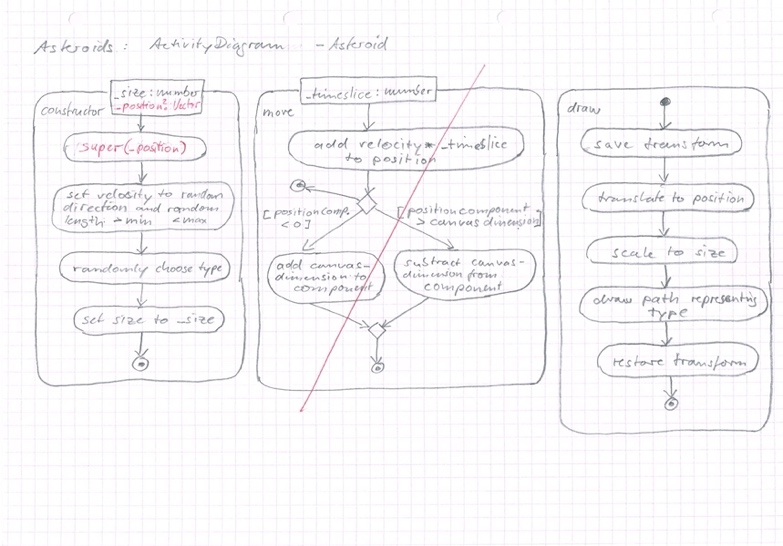 Asteroids: ActivityDiagram - Asteroid
constructor
_size: number
_position?: Vector
super(_position)
set velocity to random
direction and random
length > min < max
randomly choose type
set size to _size
move
_timeslice: number
add velocity * _timeslice
to position
[positioncomp.
< 0]
[positioncomponent
> canvas dimension]
add canvas-
dimension to
component
subtract canvas-
dimension from
component
draw
save transform
translate to position
scale to size
draw path representing
type
restore transform